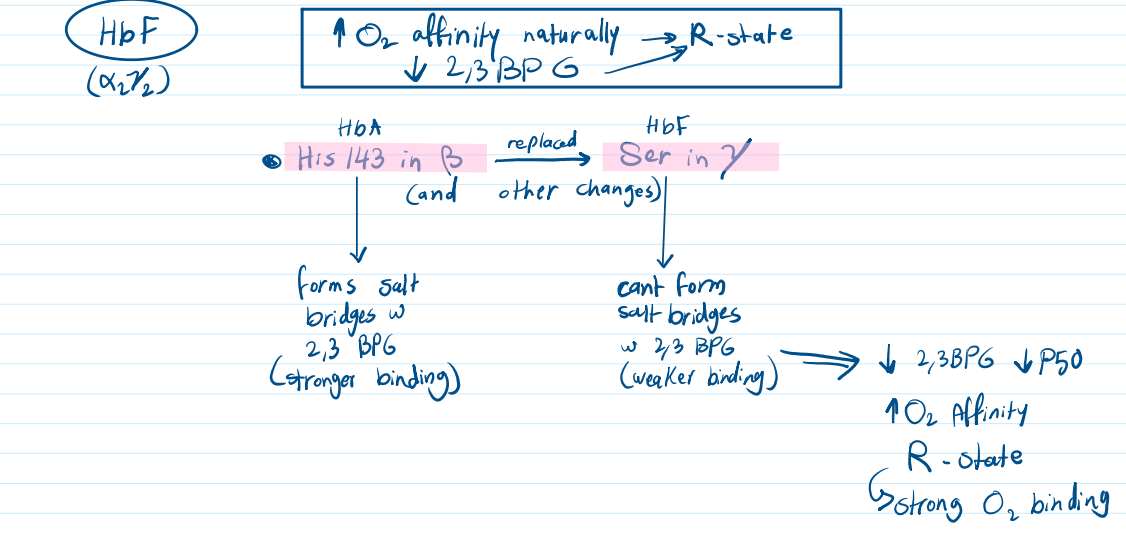 HbF
(α₂γ₂)
↑ O₂ affinity naturally → R-state
↓ 2,3 BPG →
HbA
HbF
• His 143 in β replaced → Ser in γ
(and other changes)
forms salt
bridges w
2,3 BPG
(stronger binding)
cant form
salt bridges
w 2,3 BPG
(weaker binding)
→ ↓ 2,3BPG ↓ P50
↑ O₂ Affinity
R-state
↳ strong O₂ binding